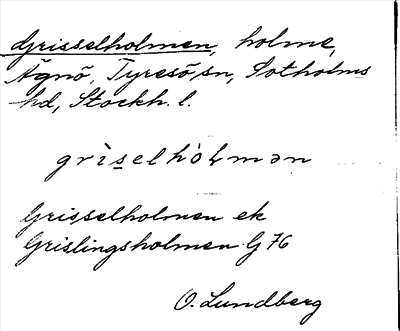 Grisselholmen, holme,
Ägnö, Tyresö sn, Sotholms
hd, Stockh. l.
grìs̠elhòɫmən
Grisselholmen ek
Grislingsholmen G 76
O. Lundberg